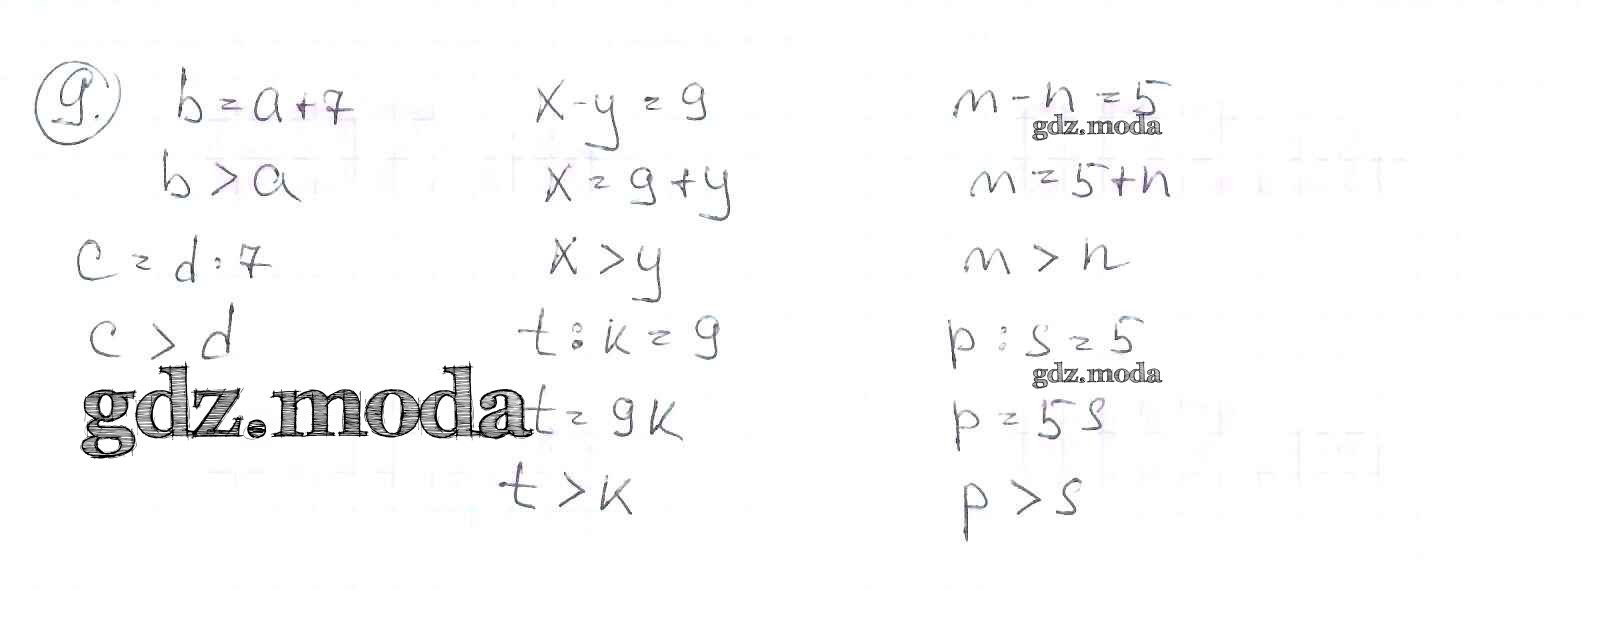 9. b = a + 7
b > a
c = d : 7
c > d
gdz.moda
x - y = 9
x = 9 + y
x > y
t : k = 9
t = 9k
t > k
m - n = 5
gdz.moda
m = 5 + n
m > n
p : s = 5
gdz.moda
p = 5s
p > s